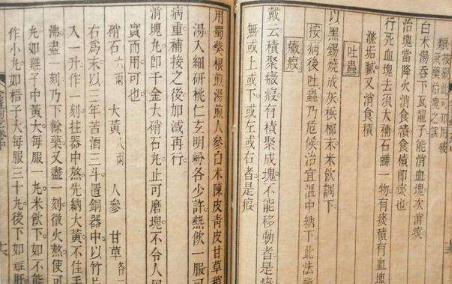 白朮湯吞下瓦龍子能消血塊次消痰
治塊當降火消食積食積即痰也
行死血塊去須大補石鹻一物有痰積有血塊
滌垢膩又消食積
吐蟲
以黑錫燒灰檳榔末米飲調下
按病後吐蟲乃危候治宜溫中納下此法
癥瘕
戴云積聚癥瘕有積聚成塊不能移動者是癥
無或上或下或左或右者是瘕
用蜀葵根煎湯煎人參白朮陳皮青皮甘草
湯入細研桃仁玄明粉各少許熱飲一服可
病重補接之後加減再行
消塊丸即千金大硝石丸止可磨塊不令人困
實而用可也
硝石六兩 大黃八兩 人參 甘草各
右為末以三年苦酒三斗置銅器中以竹
入一升作一刻拄器中熬先納大黃不住手
沸盡一刻乃下餘藥又盡一刻微火熬使可
丸如雞子中黃大每服一丸米飲下如不能
作小丸如梧子大每服三十丸後下如